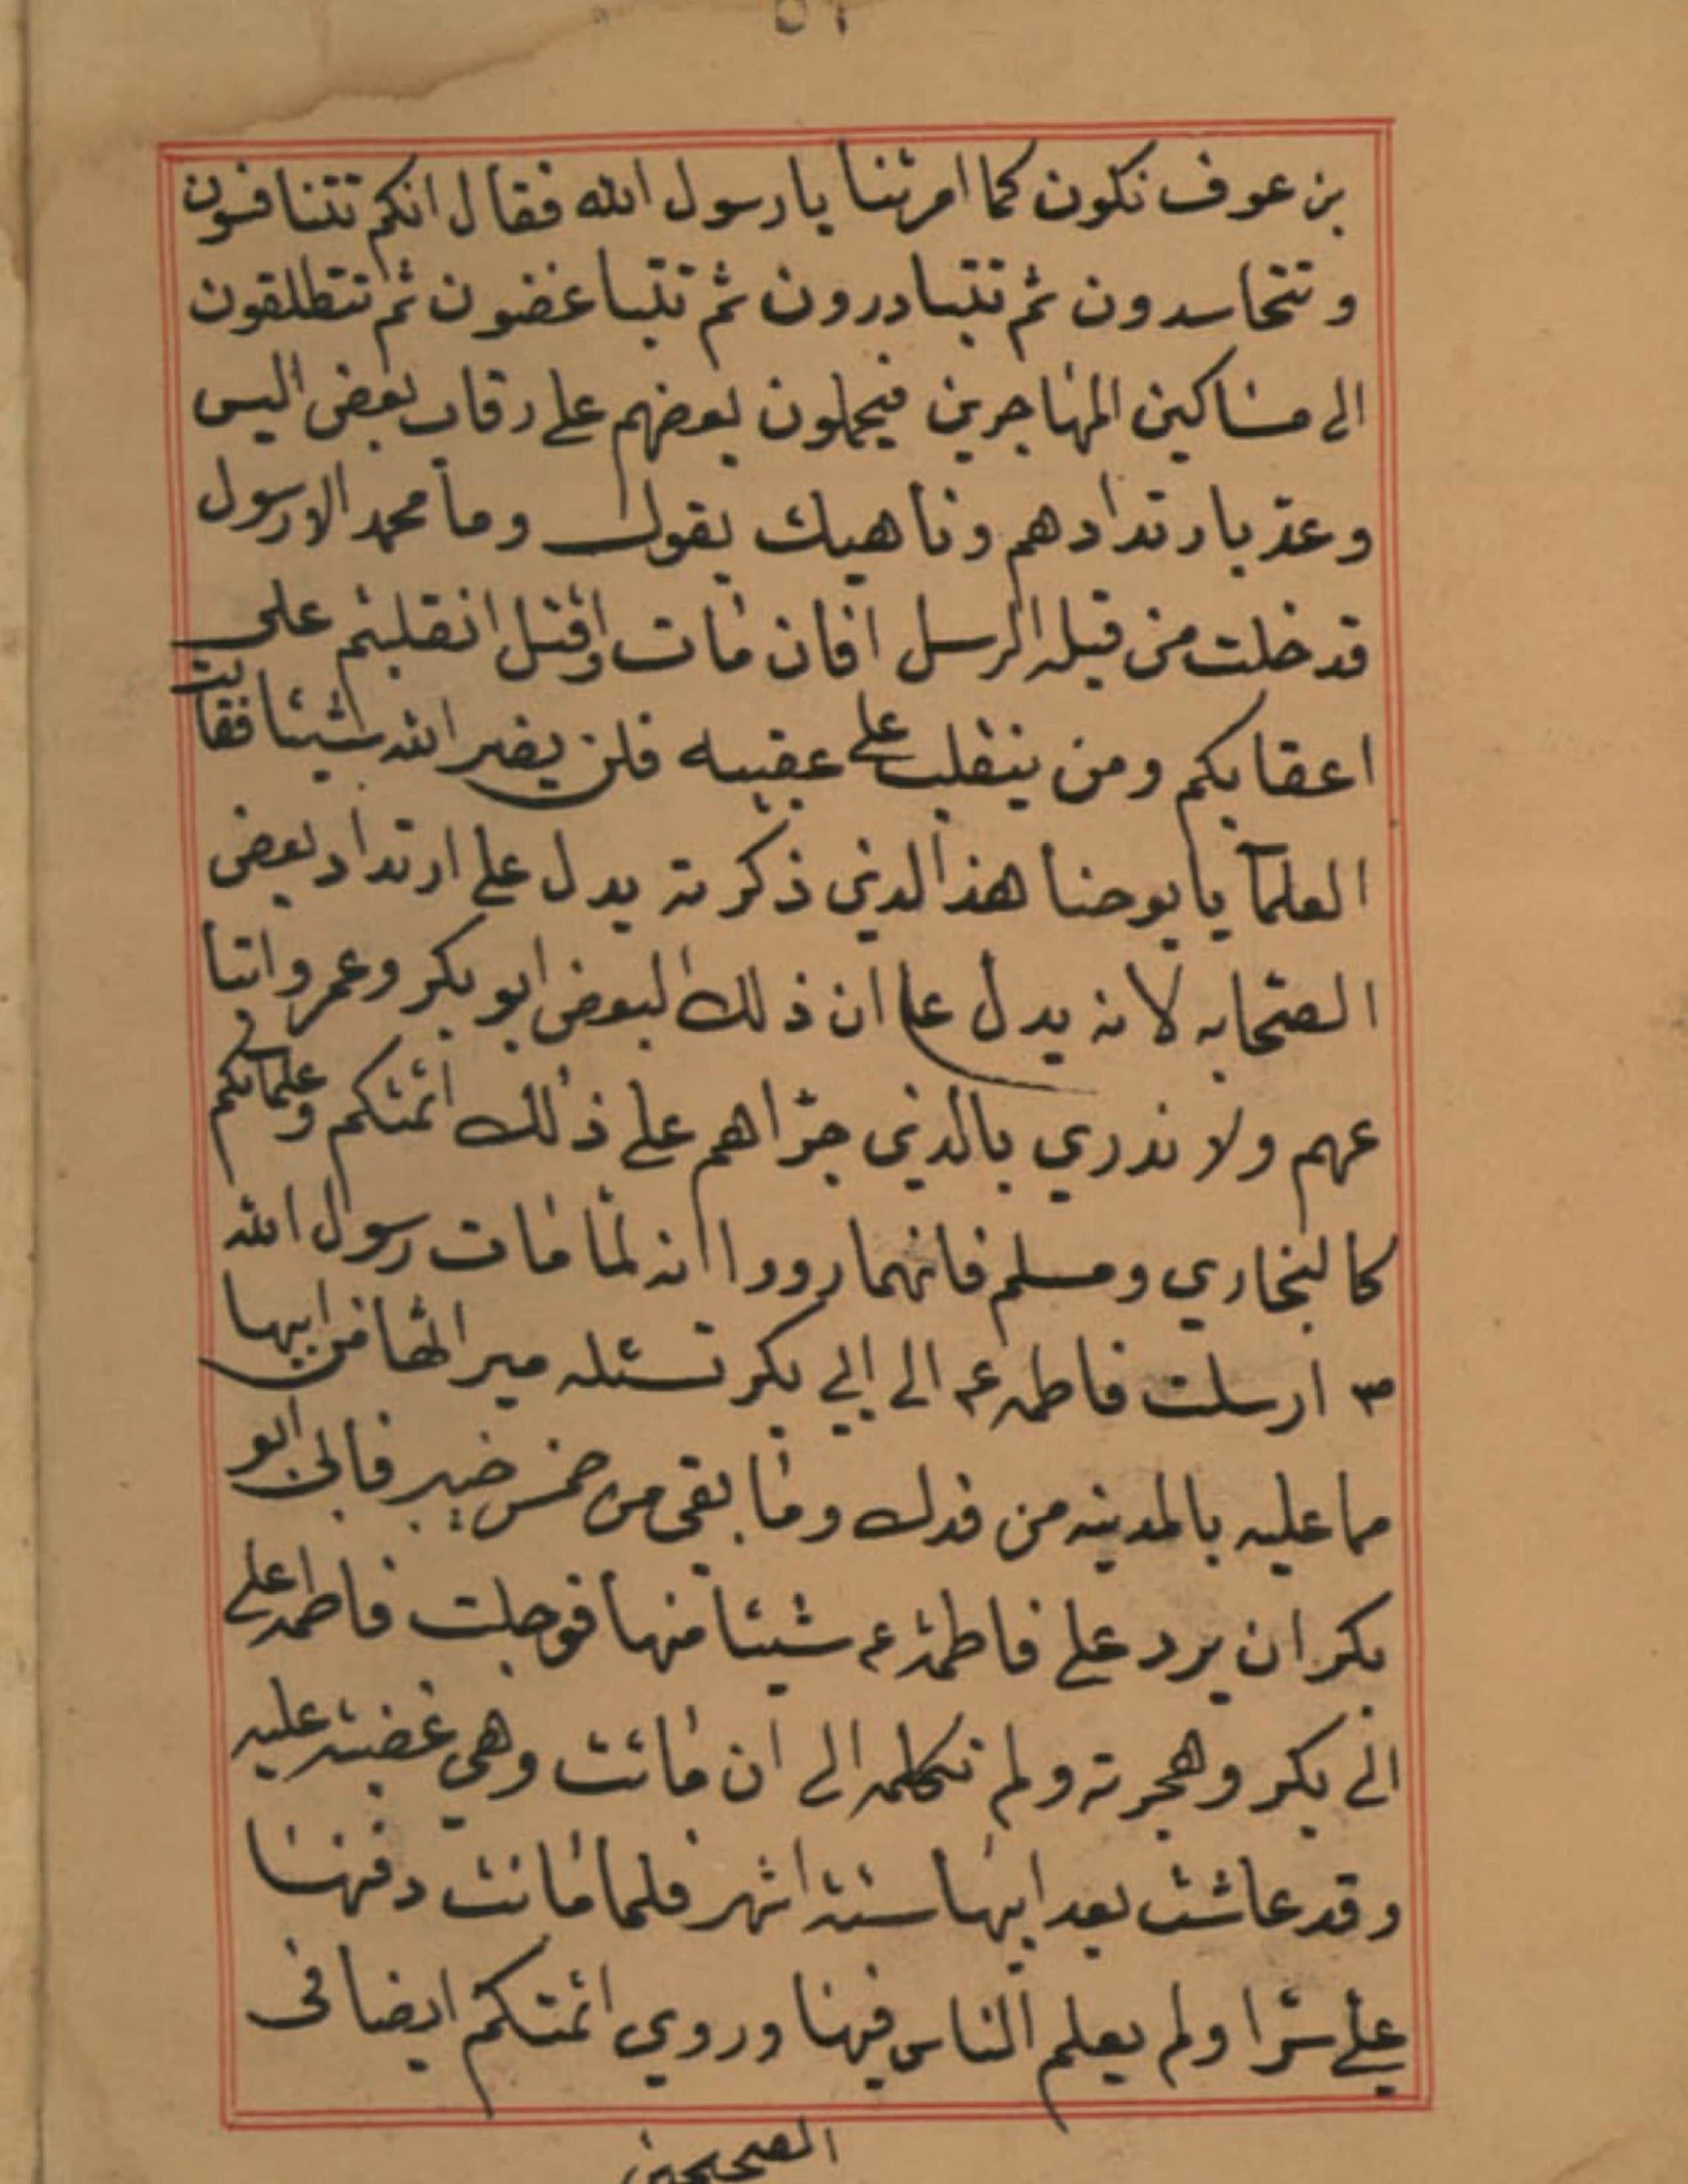 بن عوف نكون كما امرتنا يا رسول الله فقال انكم تتنافسون
و تتحاسدون ثم تتبادرون ثم تتباغضون ثم تتطلقون
الى مساكين المهاجرين فيحملون بعضهم على رقاب بعض اليس
وعد بارتدادهم وناهيك بقوله وما محمد الا رسول
قد خلت من قبله الرسل افان مات اوقتل انقلبتم على
اعقابكم ومن ينقلب على عقبيه فلن يضر الله شيئا فقالت
العلمآ يا يوحنا هذا الذي ذكرته يدل على ارتداد بعض
الصحابه لانه يدل على ان ذلك البعض ابو بكر وعمر واتبا
عهم ولا ندري بالذي جرّاهم على ذلك ائمتكم وعلمائكم
كالبخاري ومسلم فانهما رووا انه لمّا مات رسول الله
ص ارسلت فاطمه ع الى ابي بكر تسئله ميراثها من ابيها
مما عليه بالمدينه من فدك وما بقى من خمس خيبر فابى ابو
بكر ان يرد على فاطمة ع شيئا منها فوجلت فاطمه على
ابي بكر وهجرته ولم تكلمه الى ان ماتت وهي غضبته عليه
وقد عاشت بعد ابيها ستة اشهر فلما ماتت دفنها
علي سرّا ولم يعلم الناس فيها وروي ائمتكم ايضا فى
الصحيحين